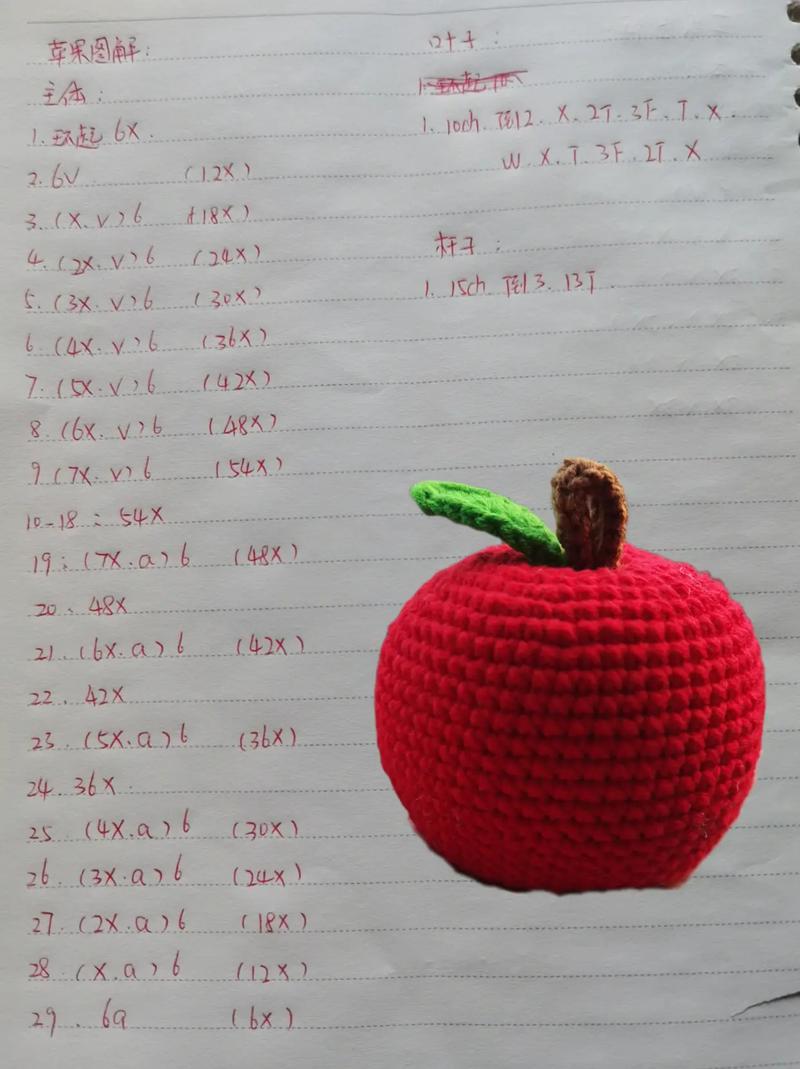 苹果图解:
主体:
1. 环起 6X.
2. 6V (12X)
3. (X. V) 6 (18X)
4. (2X. V) 6 (24X)
5. (3X. V) 6 (30X)
6. (4X. V) 6 (36X)
7. (5X. V) 6 (42X)
8. (6X. V) 6 (48X)
9 (7X. V) 6 (54X)
10-18: 54X
19: (7X. a) 6 (48X)
20. 48X
21. (6X. a) 6 (42X)
22. 42X
23. (5X. a) 6 (36X)
24. 36X.
25. (4X. a) 6 (30X)
26. (3X. a) 6 (24X)
27. (2X. a) 6 (18X)
28. (X. a) 6 (12X)
29. 6a (6X)
叶子:
1. 10ch. 倒2. X. 2T. 3F. T. X.
W. X. T. 3F. 2T. X
杆子:
1. 15ch. 倒3. 13T.